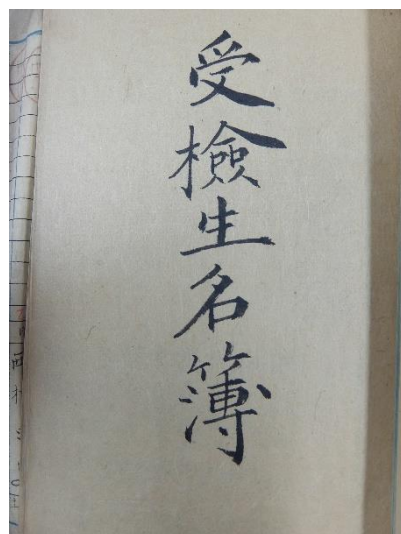 受檢生名簿